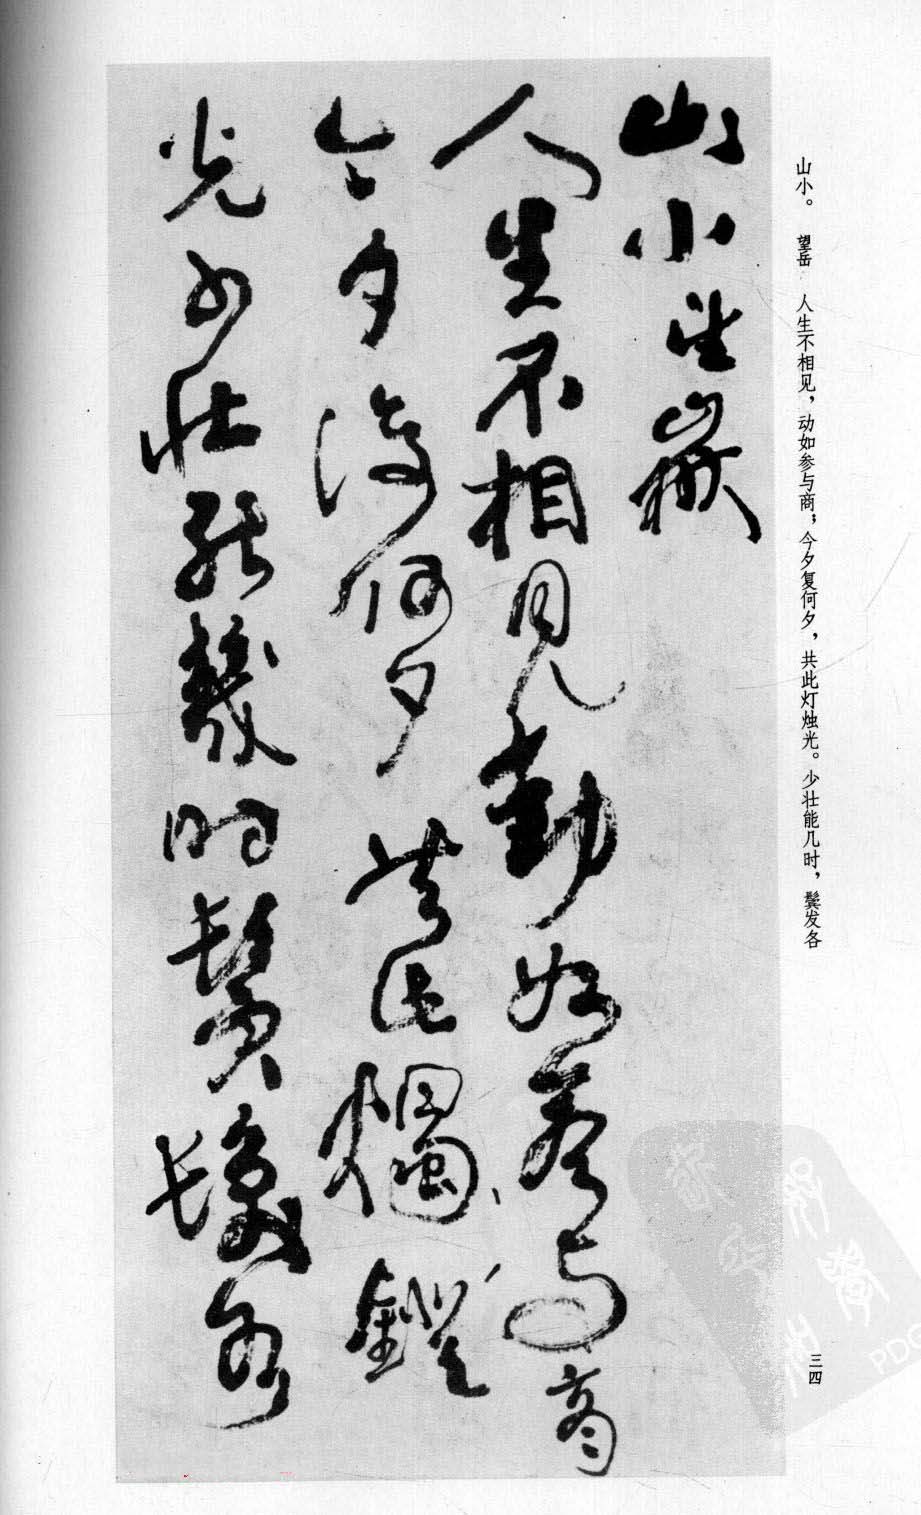 山小。 望岳 人生不相见，动如参与商；今夕复何夕，共此灯烛光。少壮能几时，鬓发各
三四
山小望嶽
人生不相見動如參与商
今夕復何夕共此燭鐙
光少壯能幾時鬢髮各
PDG